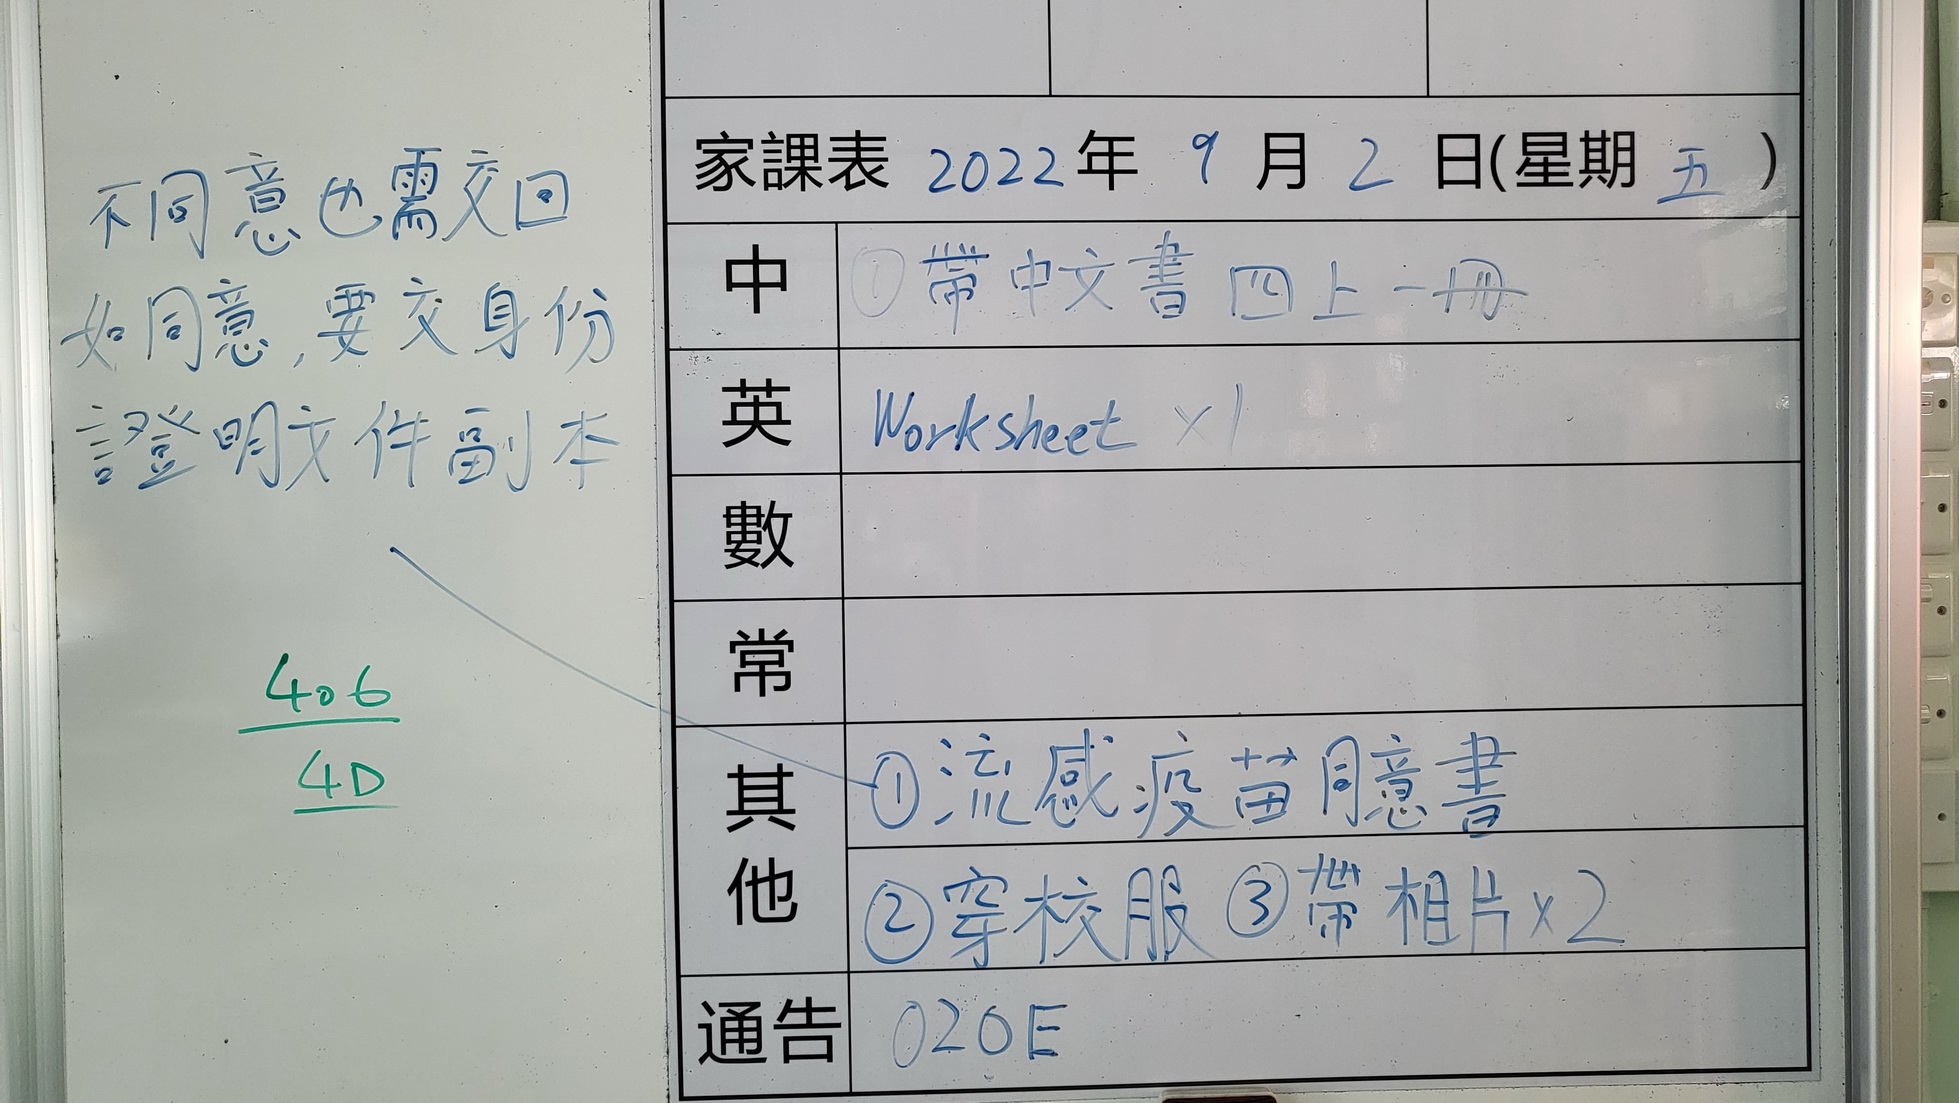 不同意也需交回
如同意,要交身份
證明文件副本
406
4D
家課表 2022年 9月 2日(星期 五 )
中 ①帶中文書四上一冊
英 Worksheet ×1
數
常
其他 ①流感疫苗同意書
②穿校服 ③帶相片×2
通告 020E